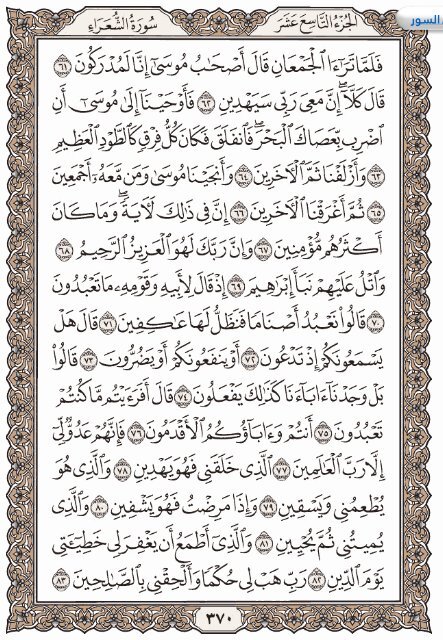 الجزء التاسع عشر
سورة الشعراء
السور
فَلَمَّا تَرَٰٓءَا ٱلۡجَمۡعَانِ قَالَ أَصۡحَٰبُ مُوسَىٰٓ إِنَّا لَمُدۡرَكُونَ ٦١
قَالَ كَلَّآۖ إِنَّ مَعِيَ رَبِّي سَيَهۡدِينِ ٦٢ فَأَوۡحَيۡنَآ إِلَىٰ مُوسَىٰٓ أَنِ
ٱضۡرِب بِّعَصَاكَ ٱلۡبَحۡرَۖ فَٱنفَلَقَ فَكَانَ كُلُّ فِرۡقٖ كَٱلطَّوۡدِ ٱلۡعَظِيمِ
٦٣ وَأَزۡلَفۡنَا ثَمَّ ٱلۡأٓخَرِينَ ٦٤ وَأَنجَيۡنَا مُوسَىٰ وَمَن مَّعَهُۥٓ أَجۡمَعِينَ
٦٥ ثُمَّ أَغۡرَقۡنَا ٱلۡأٓخَرِينَ ٦٦ إِنَّ فِي ذَٰلِكَ لَأٓيَةٗۖ وَمَا كَانَ
أَكۡثَرُهُم مُّؤۡمِنِينَ ٦٧ وَإِنَّ رَبَّكَ لَهُوَ ٱلۡعَزِيزُ ٱلرَّحِيمُ ٦٨
وَٱتۡلُ عَلَيۡهِمۡ نَبَأَ إِبۡرَٰهِيمَ ٦٩ إِذۡ قَالَ لِأَبِيهِ وَقَوۡمِهِۦ مَا تَعۡبُدُونَ
٧٠ قَالُواْ نَعۡبُدُ أَصۡنَامٗا فَنَظَلُّ لَهَا عَٰكِفِينَ ٧١ قَالَ هَلۡ
يَسۡمَعُونَكُمۡ إِذۡ تَدۡعُونَ ٧٢ أَوۡ يَنفَعُونَكُمۡ أَوۡ يَضُرُّونَ ٧٣ قَالُواْ
بَلۡ وَجَدۡنَآ ءَابَآءَنَا كَذَٰلِكَ يَفۡعَلُونَ ٧٤ قَالَ أَفَرَءَيۡتُم مَّا كُنتُمۡ
تَعۡبُدُونَ ٧٥ أَنتُمۡ وَءَابَآؤُكُمُ ٱلۡأَقۡدَمُونَ ٧٦ فَإِنَّهُمۡ عَدُوّٞ لِّيٓ
إِلَّا رَبَّ ٱلۡعَٰلَمِينَ ٧٧ ٱلَّذِي خَلَقَنِي فَهُوَ يَهۡدِينِ ٧٨ وَٱلَّذِي هُوَ
يُطۡعِمُنِي وَيَسۡقِينِ ٧٩ وَإِذَا مَرِضۡتُ فَهُوَ يَشۡفِينِ ٨٠ وَٱلَّذِي
يُمِيتُنِي ثُمَّ يُحۡيِينِ ٨١ وَٱلَّذِيٓ أَطۡمَعُ أَن يَغۡفِرَ لِي خَطِيٓـَٔتِي
يَوۡمَ ٱلدِّينِ ٨٢ رَبِّ هَبۡ لِي حُكۡمٗا وَأَلۡحِقۡنِي بِٱلصَّٰلِحِينَ ٨٣
٣٧٠